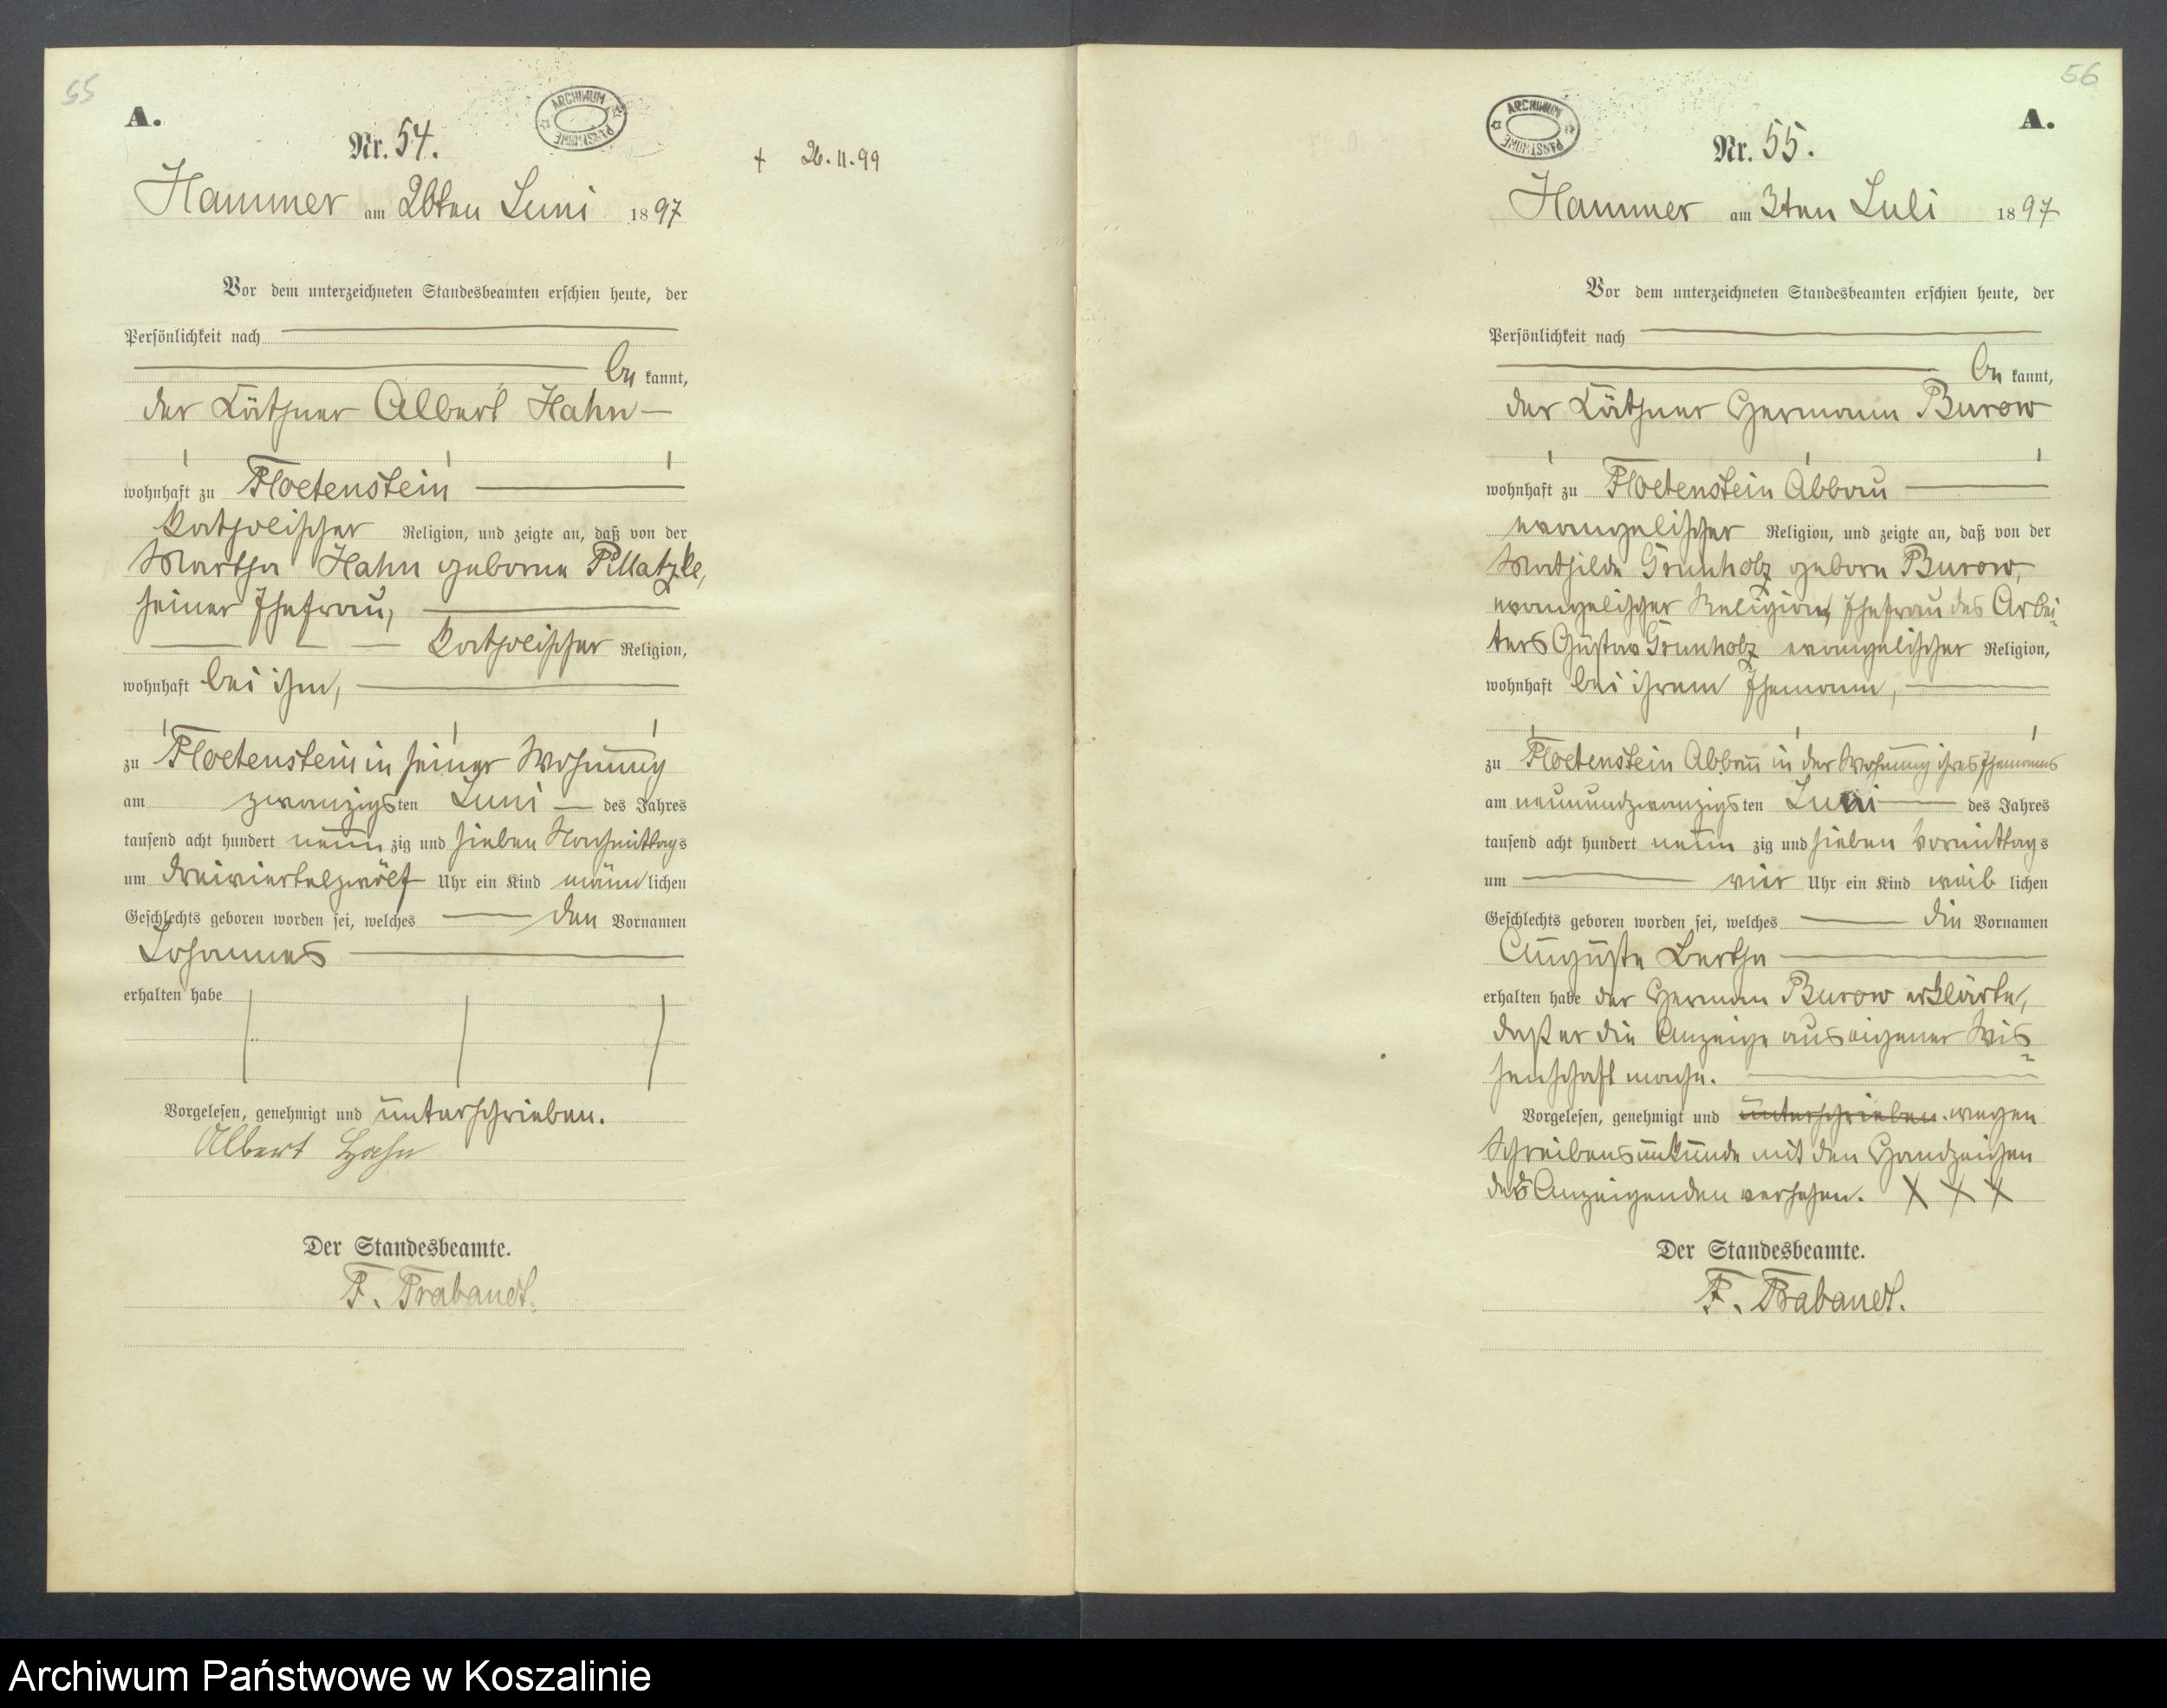 55
A.
Nr. 54.
ARCHIWUM PAŃSTWOWE
† 26.11.99
Hammer am 26ten Juni 1897
Vor dem unterzeichneten Standesbeamten erschien heute, der
Persönlichkeit nach
be kannt,
der Käthner Albert Hahn
wohnhaft zu Floetenstein
katholischer Religion, und zeigte an, daß von der
Martha Hahn geborne Pillatzke,
seiner Ehefrau,
katholischer Religion,
wohnhaft bei ihm,
zu Floetenstein in seiner Wohnung
am zwanzigsten Juni des Jahres
tausend acht hundert neun zig und sieben Nachmittags
um dreiviertelzwölf Uhr ein Kind männ lichen
Geschlechts geboren worden sei, welches den Vornamen
Johannes
erhalten habe
Vorgelesen, genehmigt und unterschrieben.
Albert Hahn
Der Standesbeamte.
F. Trabandt.
56
A.
ARCHIWUM PAŃSTWOWE
Nr. 55.
Hammer am 3ten Juli 1897
Vor dem unterzeichneten Standesbeamten erschien heute, der
Persönlichkeit nach
be kannt,
der Käthner Hermann Burow
wohnhaft zu Floetenstein Abbau
evangelischer Religion, und zeigte an, daß von der
Mathilde Grunholz geborn Burow,
evangelischer Religion, Ehefrau des Arbei-
ters Gustav Grunholz evangelischer Religion,
wohnhaft bei ihrem Ehemann,
zu Floetenstein Abbau in der Wohnung ihres Ehemanns
am neunundzwanzigsten Juni des Jahres
tausend acht hundert neun zig und sieben Vormittags
um vier Uhr ein Kind weib lichen
Geschlechts geboren worden sei, welches die Vornamen
Auguste Bertha
erhalten habe der Herman Burow erklärte,
daß er die Anzeige aus eigener Wis-
senschaft mache.
Vorgelesen, genehmigt und unterschrieben. wegen
Schreibensunkunde mit den Handzeichen
des Anzeigenden versehen. X X X
Der Standesbeamte.
F. Trabandt.
Archiwum Państwowe w Koszalinie